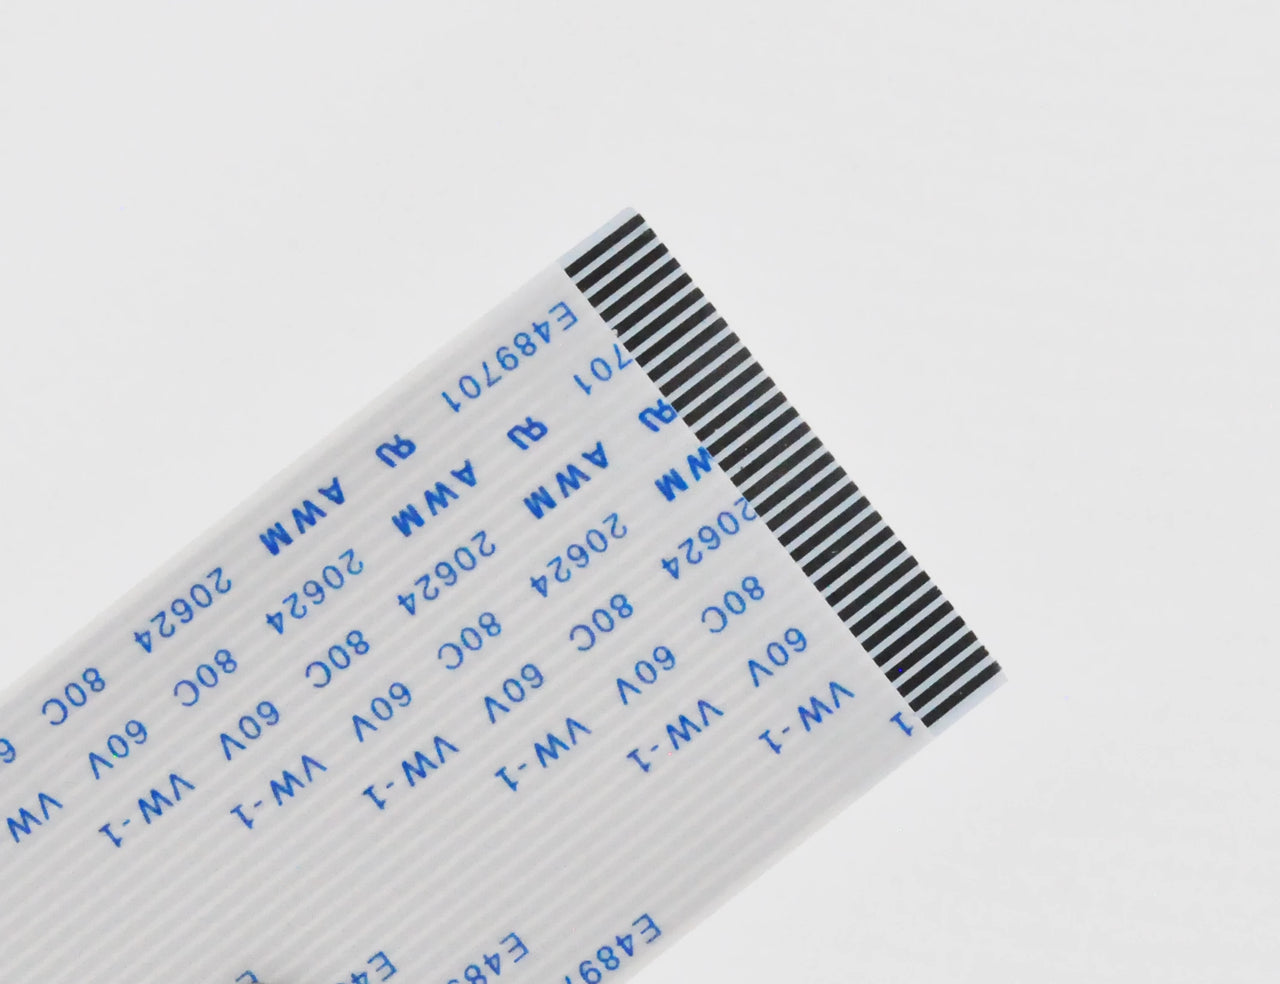 1 E4897
VW-1 E489
60V VW-1 E4
80C 60V VW-1 E
20624 80C 60V VW-1
AWM 20624 80C 60V VW-1
RU AWM 20624 80C 60V VW-1
701 RU AWM 20624 80C 60V VW
E489701 RU AWM 20624 80C 6